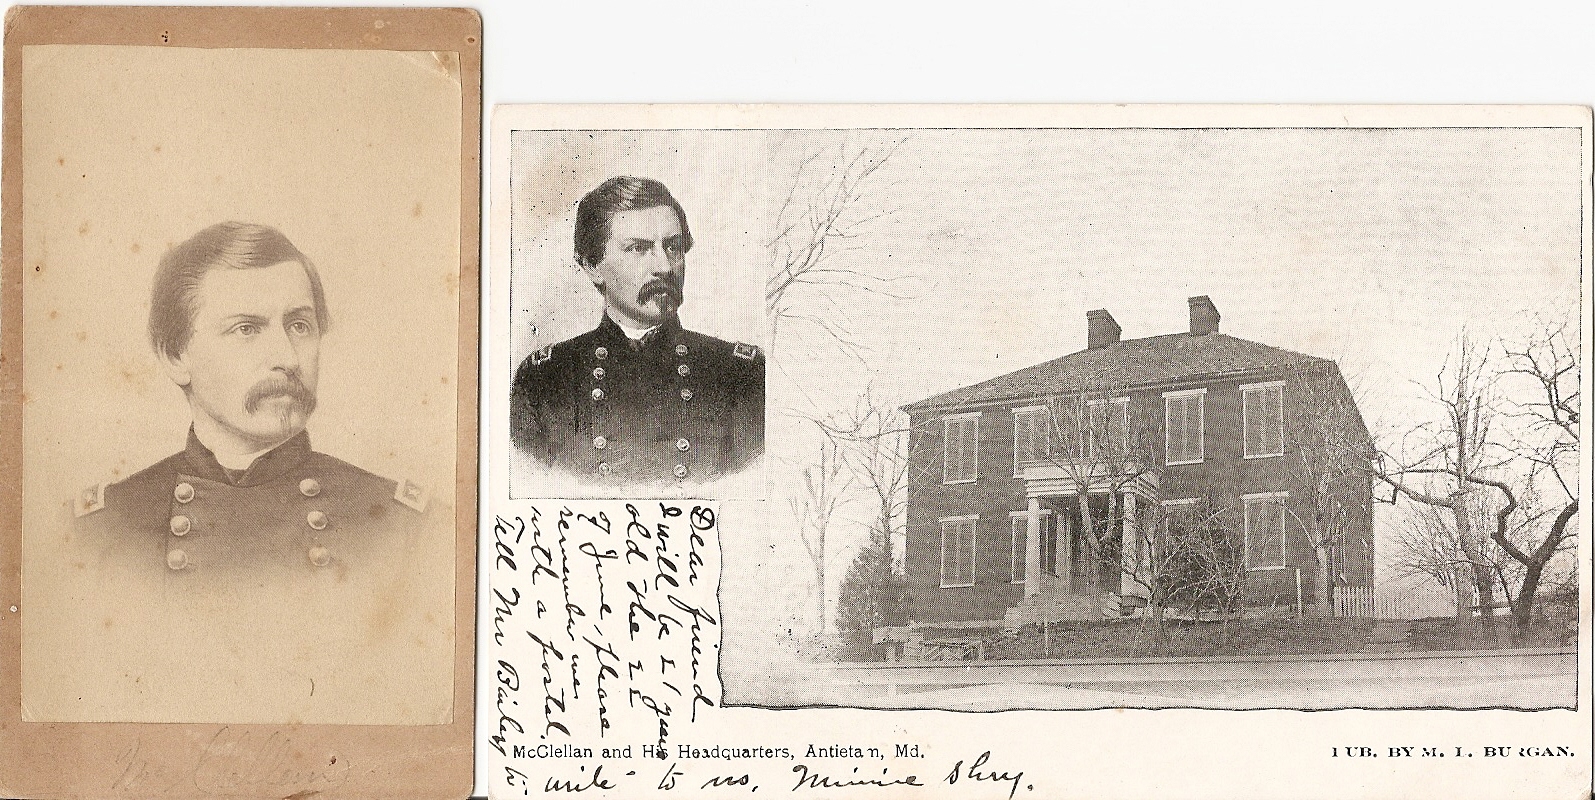 McClellan
Dear friend
I will be 21 years
old the 22
of June, please
remember me
with a postal.
Tell Mr Bailey
to write to us, Minnie Shry.
McClellan and His Headquarters, Antietam, Md.
PUB. BY M. L. BURGAN.